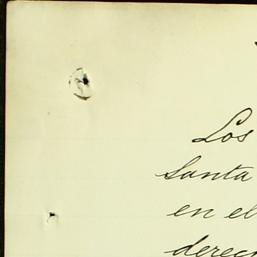 Los
Santa
en el
derec